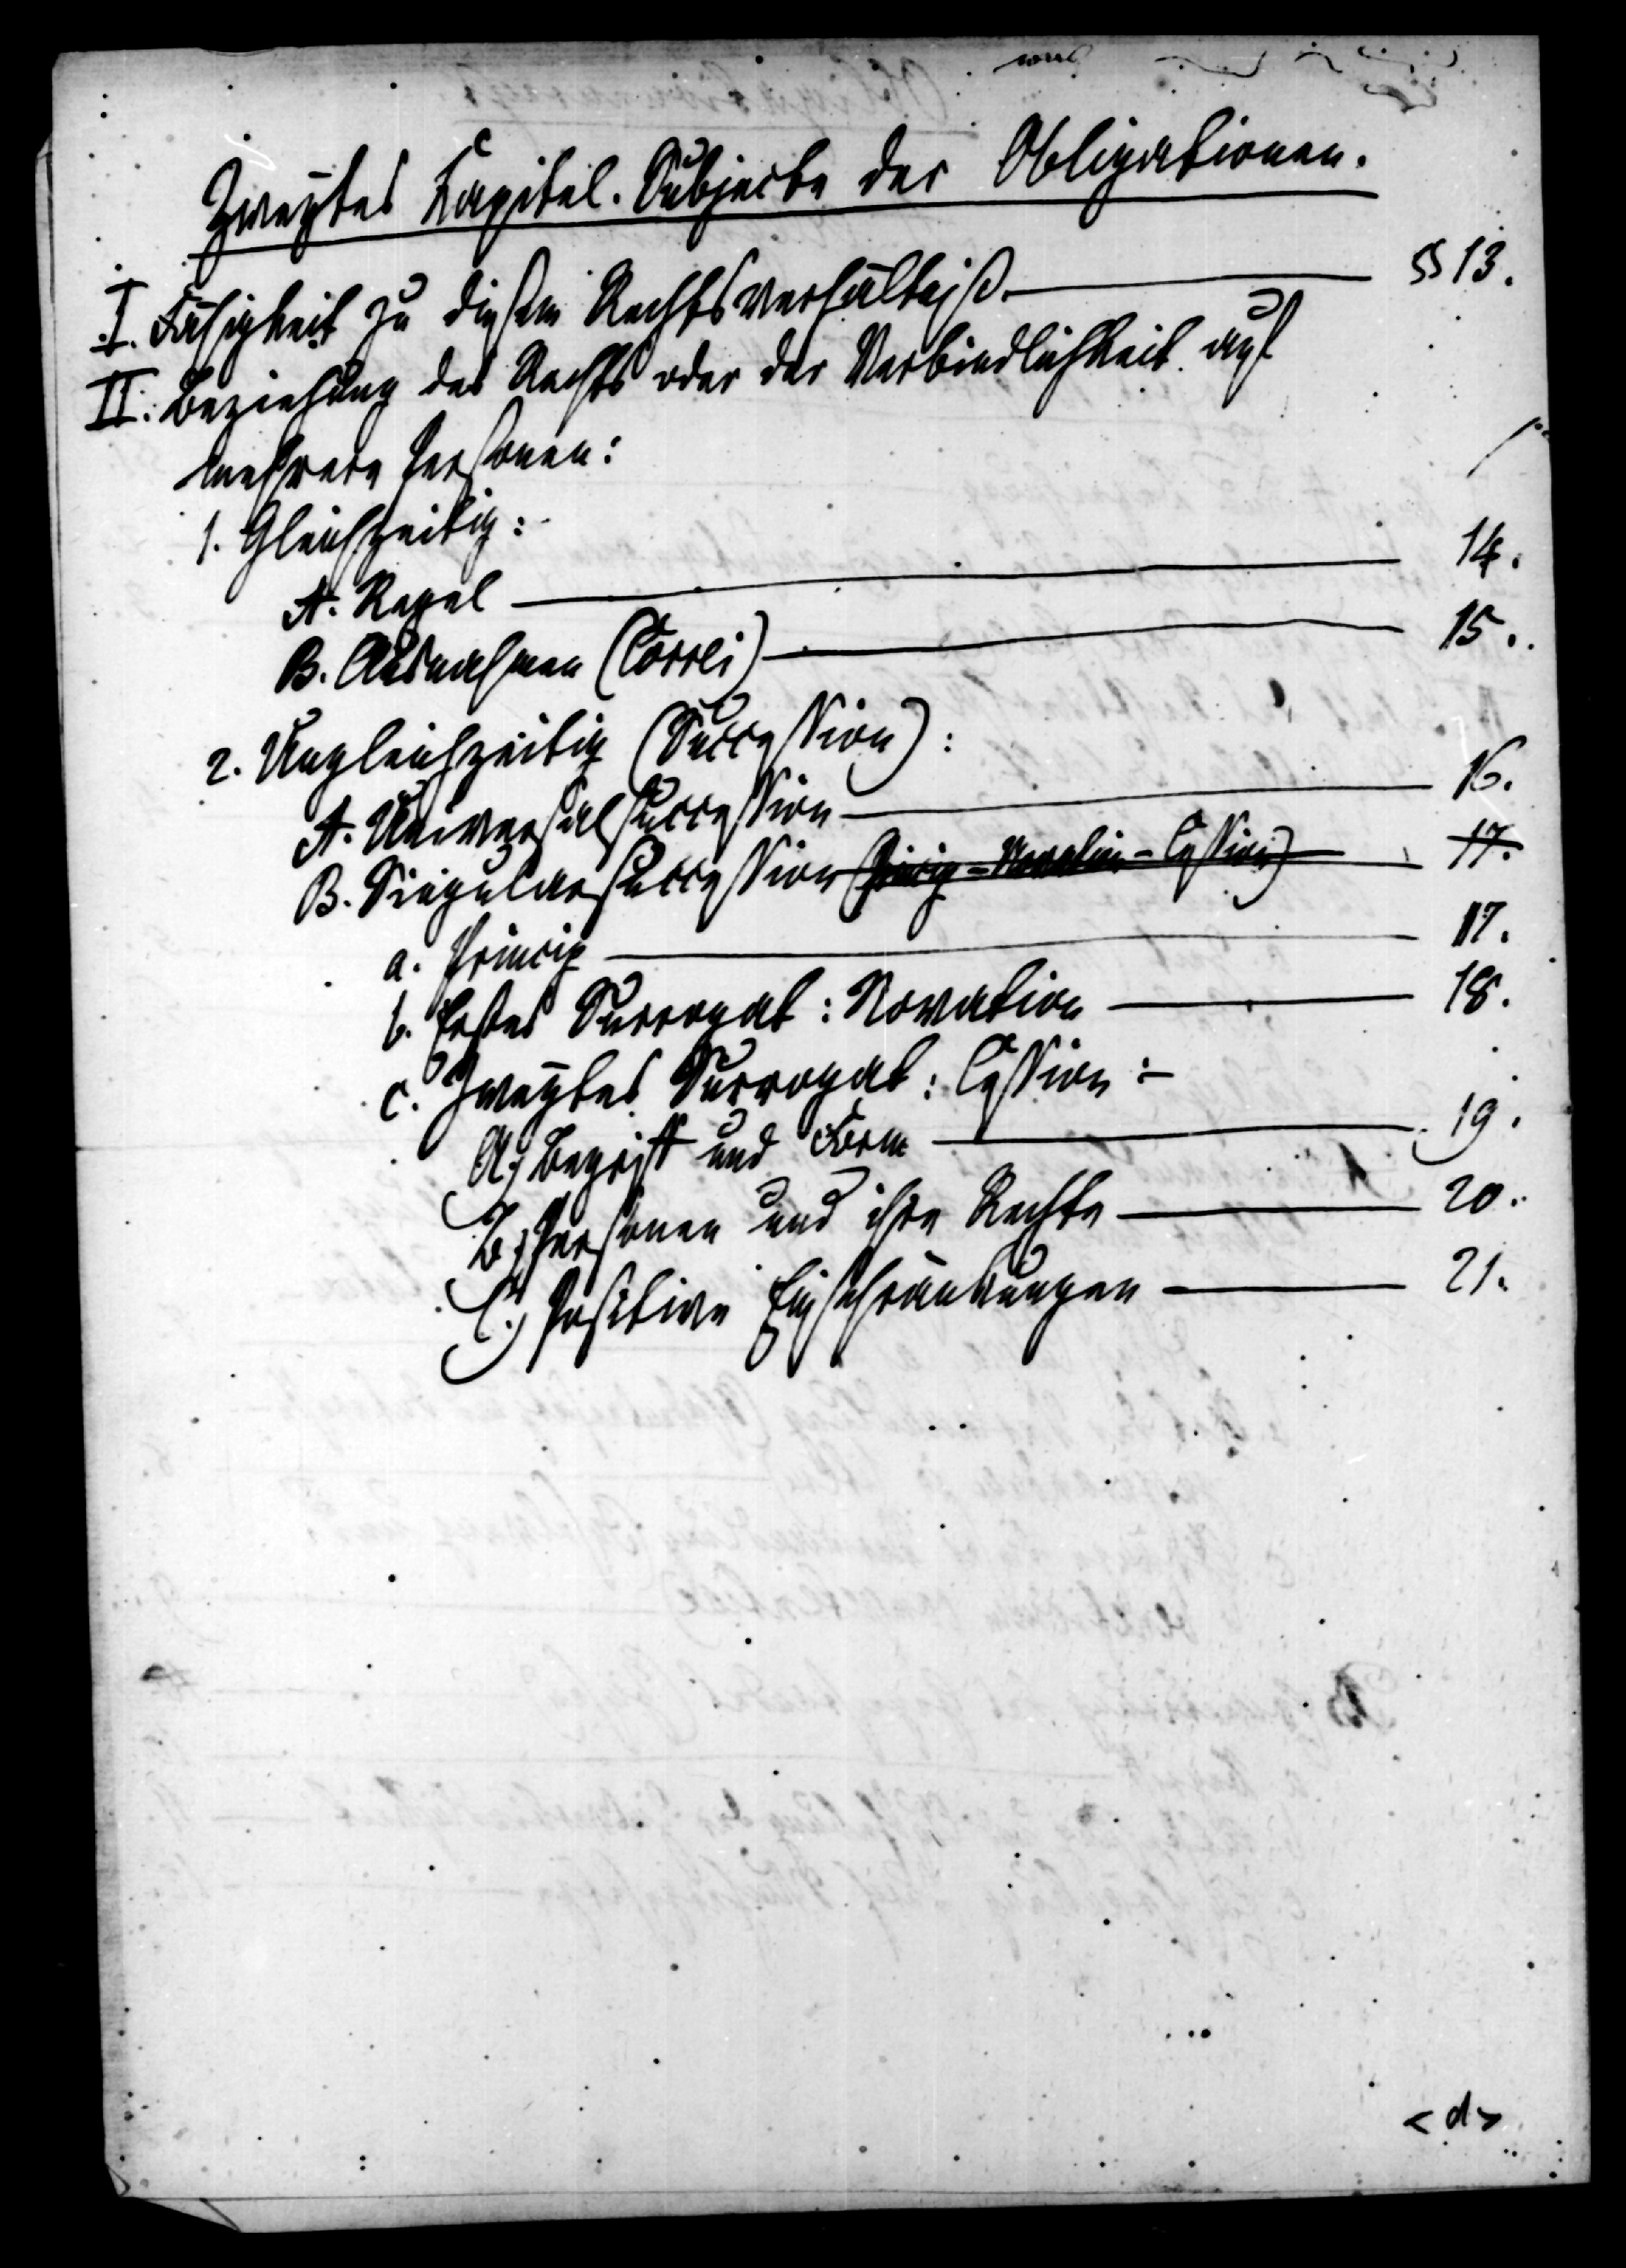 Zweytes Kapitel. Subjecte der Obligationen.
I. Fähigkeit zu diesem Rechtsverhältniß. — §§ 13.
II. Beziehung des Rechts oder der Verbindlichkeit auf
mehrere Personen:
1. Gleichzeitig:
A. Regel — 14.
B. Ausnahmen (Correi) — 15.
2. Ungleichzeitig (Succession):
A. Universalsuccession — 16.
B. Singularsuccession (Princip - Novation - Cession) — 17.
a. Princip — 17.
b. Erstes Surrogat: Novation — 18.
c. Zweytes Surrogat: Cession:
A.) Begriff und Form — 19.
B.) Personen und ihre Rechte — 20.
C.) Positive Einschränkungen — 21.
<d>